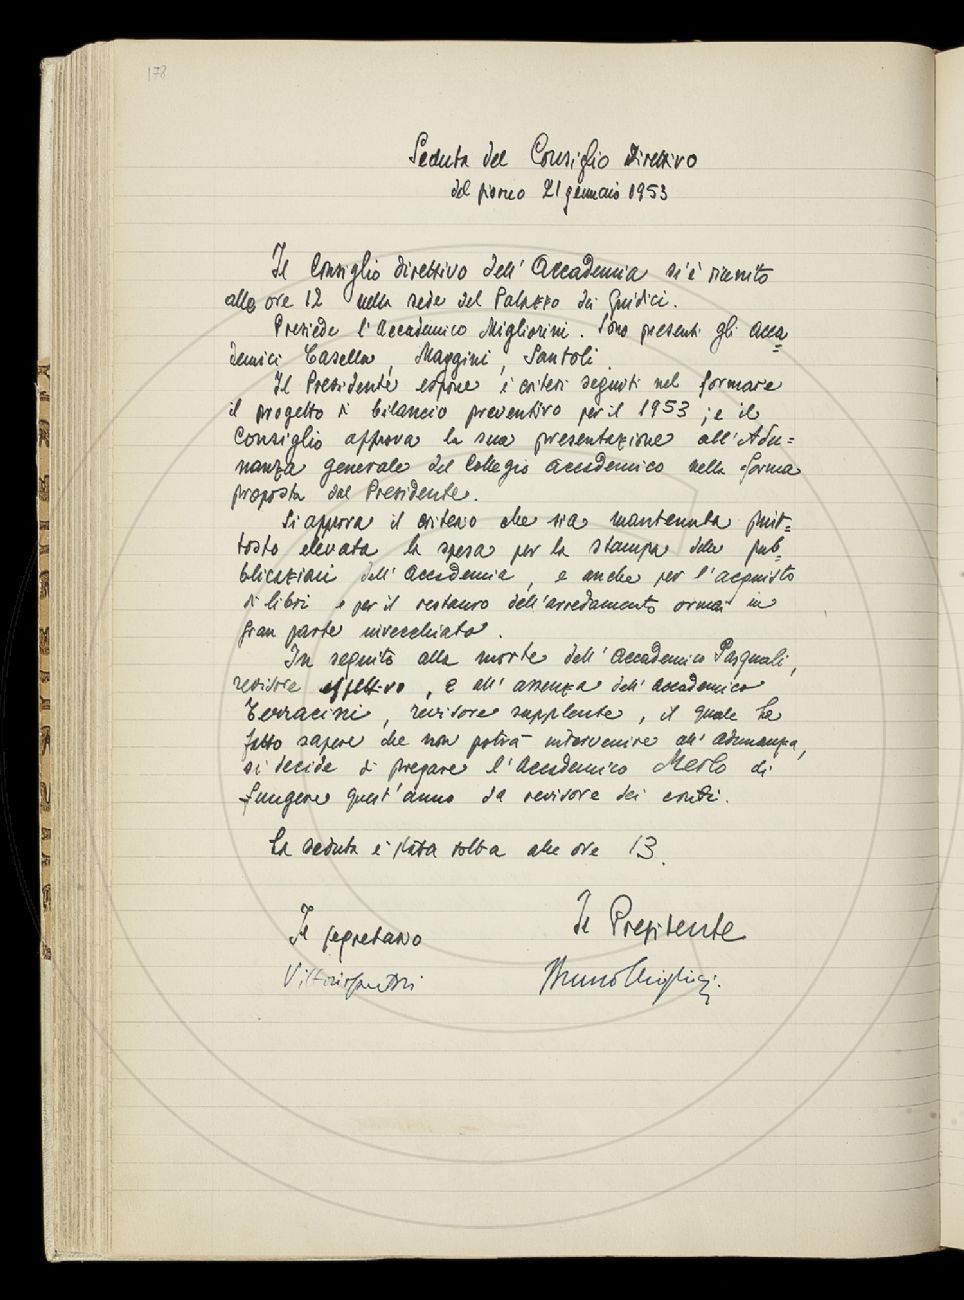 178
Seduta del Consiglio Direttivo
del giorno 21 gennaio 1953
Il Consiglio direttivo dell'Accademia si è riunito
alle ore 12 nella sede del Palazzo dei Giudici.
Presiede l'Accademico Migliorini. Sono presenti gli acca=
demici Casella, Maggini, Santoli.
Il Presidente espone i criteri seguiti nel formare
il progetto di bilancio preventivo per il 1953; e il
Consiglio approva la sua presentazione all'Adu=
nanza generale del Collegio accademico nella forma
proposta dal Presidente.
Si approva il criterio che sia mantenuta piut=
tosto elevata la spesa per la stampa delle pub=
blicazioni dell'Accademia, e anche per l'acquisto
di libri e per il restauro dell'arredamento ormai in
gran parte invecchiato.
In seguito alla morte dell'Accademico Pasquali,
revisore effettivo, e all'assenza dell'accademico
Terracini, revisore supplente, il quale ha
fatto sapere che non potrà intervenire all'adunanza,
si decide di pregare l'Accademico Merlo di
fungere quest'anno da revisore dei conti.
La seduta è stata tolta alle ore 13.
Il segretario
Il Presidente
Vittorio Santoli
Bruno Migliorini